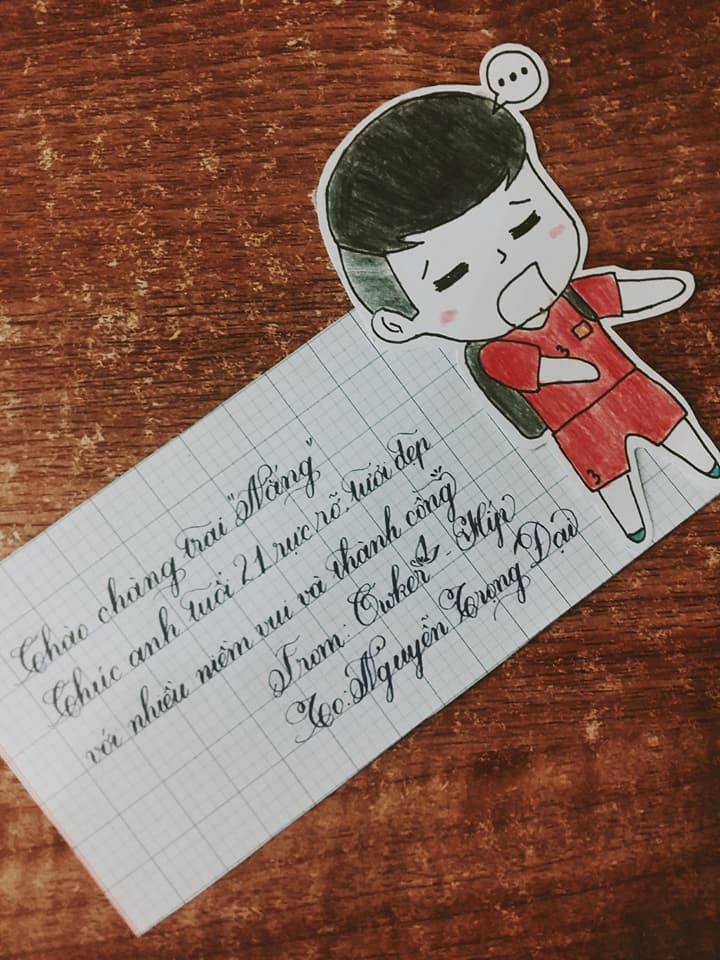 ...
3
3
Chào chàng trai "Nắng"
Chúc anh tuổi 21 rực rỡ, tươi đẹp
với nhiều niềm vui và thành công
From: Cwker
To: Nguyễn Trọng Đại